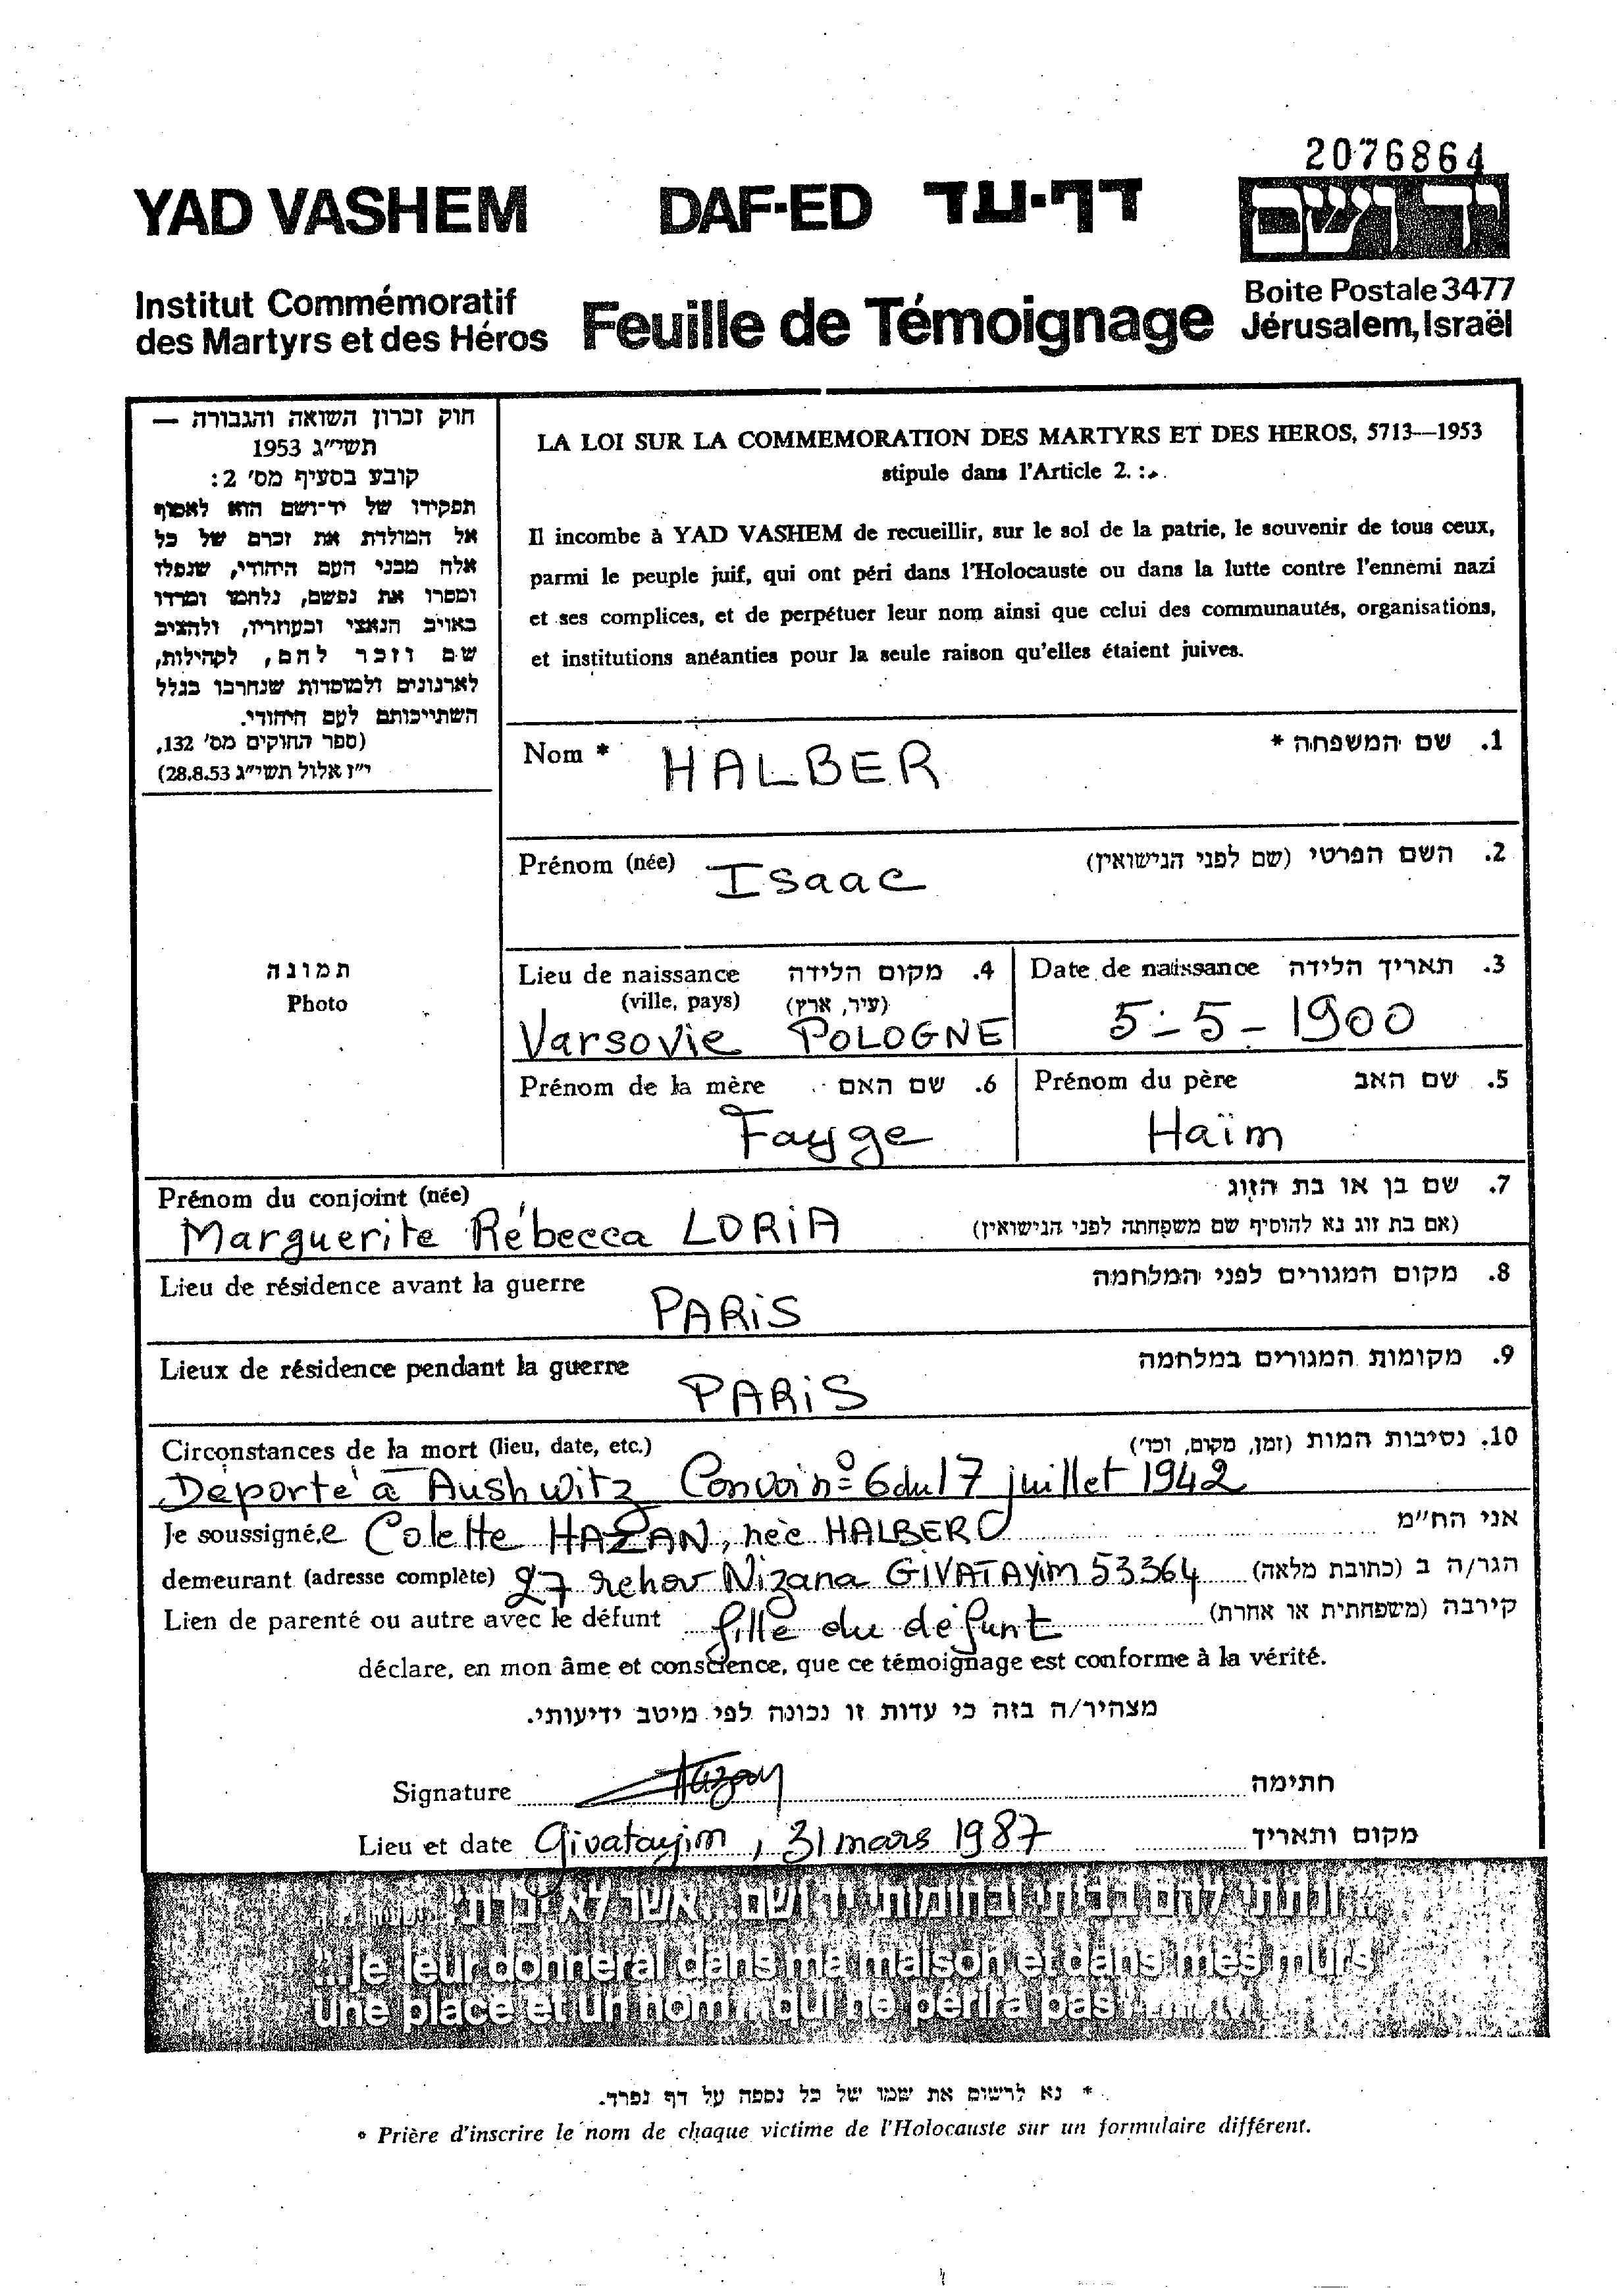 2076864
YAD VASHEM DAF-ED דף-עד
יד ושם
Institut Commémoratif
des Martyrs et des Héros
Feuille de Témoignage
Boite Postale 3477
Jérusalem, Israël
חוק זכרון השואה והגבורה —
תשי״ג 1953
קובע בסעיף מס׳ 2:
תפקידו של יד-ושם הוא לאסוף
אל המולדת את זכרם של כל
אלה מבני העם היהודי, שנפלו
ומסרו את נפשם, נלחמו ומרדו
באויב הנאצי ובעוזריו, ולהציב
שם וזכר להם, לקהילות,
לארגונים ולמוסדות שנחרבו בגלל
השתייכותם לעם היהודי.
(ספר החוקים מס׳ 132,
י״ז אלול תשי״ג 28.8.53)
LA LOI SUR LA COMMEMORATION DES MARTYRS ET DES HEROS, 5713—1953
stipule dans l'Article 2. :
Il incombe à YAD VASHEM de recueillir, sur le sol de la patrie, le souvenir de tous ceux,
parmi le peuple juif, qui ont péri dans l'Holocauste ou dans la lutte contre l'ennemi nazi
et ses complices, et de perpétuer leur nom ainsi que celui des communautés, organisations,
et institutions anéanties pour la seule raison qu'elles étaient juives.
Nom * HALBER 1. שם המשפחה *
Prénom (née) Isaac 2. השם הפרטי (שם לפני הנישואין)
תמונה
Photo
Lieu de naissance 4. מקום הלידה
(ville, pays) (עיר, ארץ)
Varsovie POLOGNE
Date de naissance 3. תאריך הלידה
5-5-1900
Prénom de la mère 6. שם האם
Fayge
Prénom du père 5. שם האב
Haïm
Prénom du conjoint (née) 7. שם בן או בת הזוג
Marguerite Rébecca LORiA (אם בת זוג נא להוסיף שם משפחתה לפני הנישואין)
Lieu de résidence avant la guerre 8. מקום המגורים לפני המלחמה
PARiS
Lieux de résidence pendant la guerre 9. מקומות המגורים במלחמה
PARiS
Circonstances de la mort (lieu, date, etc.) 10. נסיבות המות (זמן, מקום, וכו׳)
Déporté à Aushwitz Convoi nº 6 du 17 juillet 1942
Je soussigné,e Colette HAZAN, née HALBER אני הח״מ
demeurant (adresse complète) 27 rehov Nizana GIVATAYim 53364 הגר/ה ב (כתובת מלאה)
Lien de parenté ou autre avec le défunt fille du défunt קירבה (משפחתית או אחרת)
déclare, en mon âme et conscience, que ce témoignage est conforme à la vérité.
מצהיר/ה בזה כי עדות זו נכונה לפי מיטב ידיעותי.
Signature Hazan חתימה
Lieu et date Givatayim, 31 mars 1987 מקום ותאריך
"...ונתתי להם בביתי ובחומותי יד ושם... אשר לא יכרת"
"...je leur donnerai dans ma maison et dans mes murs
une place et un nom... qui ne périra pas"
* נא לרשום את שמו של כל נספה על דף נפרד.
* Prière d'inscrire le nom de chaque victime de l'Holocauste sur un formulaire différent.